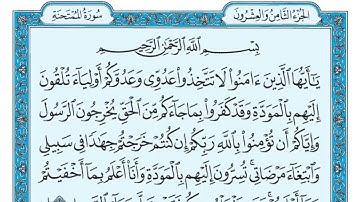 سُورَةُ المُمْتَحنَةِ
الجُزْءُ الثَّامِنُ وَالعِشْرُونَ
بِسْمِ ٱللَّهِ ٱلرَّحْمَٰنِ ٱلرَّحِيمِ
يَٰٓأَيُّهَا ٱلَّذِينَ ءَامَنُوا۟ لَا تَتَّخِذُوا۟ عَدُوِّى وَعَدُوَّكُمْ أَوْلِيَآءَ تُلْقُونَ
إِلَيْهِم بِٱلْمَوَدَّةِ وَقَدْ كَفَرُوا۟ بِمَا جَآءَكُم مِّنَ ٱلْحَقِّ يُخْرِجُونَ ٱلرَّسُولَ
وَإِيَّاكُمْ أَن تُؤْمِنُوا۟ بِٱللَّهِ رَبِّكُمْ إِن كُنتُمْ خَرَجْتُمْ جِهَٰدًا فِى سَبِيلِى
وَٱبْتِغَآءَ مَرْضَاتِى تُسِرُّونَ إِلَيْهِم بِٱلْمَوَدَّةِ وَأَنَا۠ أَعْلَمُ بِمَآ أَخْفَيْتُمْ